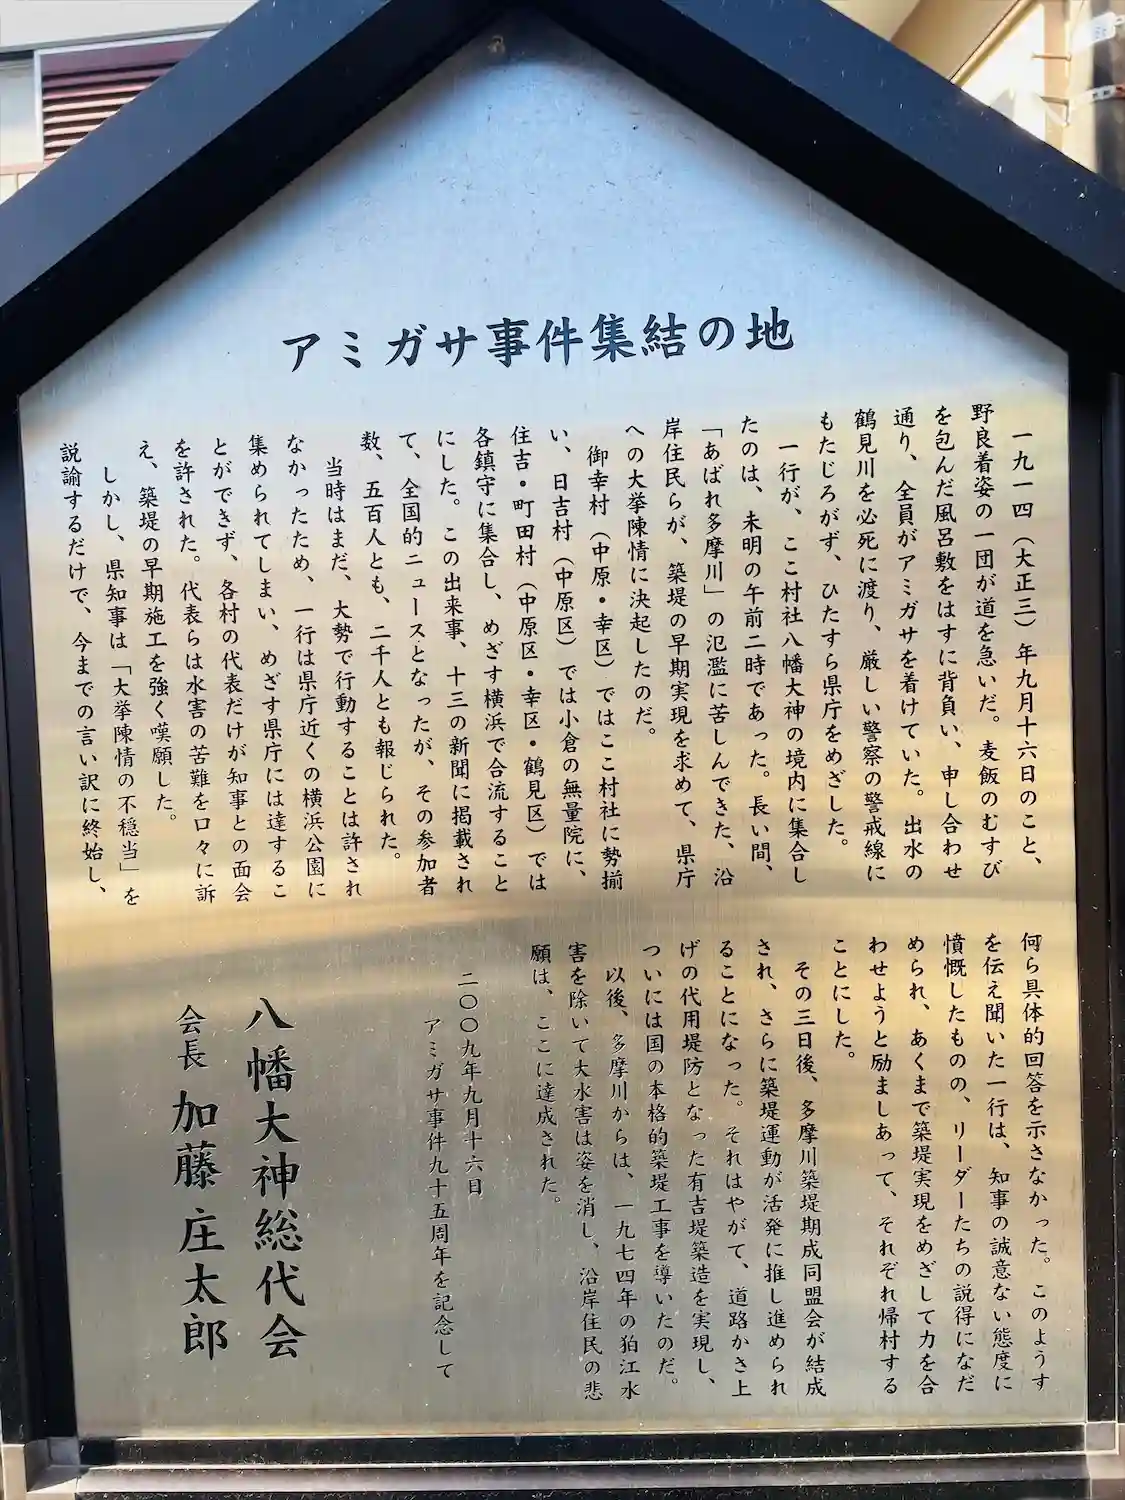 アミガサ事件集結の地
一九一四（大正三）年九月十六日のこと、
野良着姿の一団が道を急いだ。麦飯のむすび
を包んだ風呂敷をはすに背負い、申し合わせ
通り、全員がアミガサを着けていた。出水の
鶴見川を必死に渡り、厳しい警察の警戒線に
もたじろがず、ひたすら県庁をめざした。
一行が、ここ村社八幡大神の境内に集合し
たのは、未明の午前二時であった。長い間、
「あばれ多摩川」の氾濫に苦しんできた、沿
岸住民らが、築堤の早期実現を求めて、県庁
への大挙陳情に決起したのだ。
御幸村（中原・幸区）ではここ村社に勢揃
い、日吉村（中原区）では小倉の無量院に、
住吉・町田村（中原区・幸区・鶴見区）では
各鎮守に集合し、めざす横浜で合流すること
にした。この出来事、十三の新聞に掲載され
て、全国的ニュースとなったが、その参加者
数、五百人とも、二千人とも報じられた。
当時はまだ、大勢で行動することは許され
なかったため、一行は県庁近くの横浜公園に
集められてしまい、めざす県庁には達するこ
とができず、各村の代表だけが知事との面会
を許された。代表らは水害の苦難を口々に訴
え、築堤の早期施工を強く嘆願した。
しかし、県知事は「大挙陳情の不穏当」を
説諭するだけで、今までの言い訳に終始し、
何ら具体的回答を示さなかった。このようす
を伝え聞いた一行は、知事の誠意ない態度に
憤慨したものの、リーダーたちの説得になだ
められ、あくまで築堤実現をめざして力を合
わせようと励ましあって、それぞれ帰村する
ことにした。
その三日後、多摩川築堤期成同盟会が結成
され、さらに築堤運動が活発に推し進められ
ることになった。それはやがて、道路かさ上
げの代用堤防となった有吉堤築造を実現し、
ついには国の本格的築堤工事を導いたのだ。
以後、多摩川からは、一九七四年の狛江水
害を除いて大水害は姿を消し、沿岸住民の悲
願は、ここに達成された。
二〇〇九年九月十六日
アミガサ事件九十五周年を記念して
八幡大神総代会
会長 加藤 庄太郎